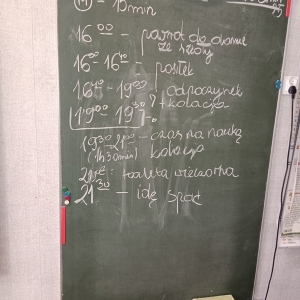 (M) = 15 min
16⁰⁰ - powrót do domu
ze szkoły
16⁰⁰-16⁴⁰ - posiłek
16⁴⁰ - 19⁰⁰ odpoczynek
19⁰⁰ 19³⁰ ? + kolacja
19³⁰-21⁰⁰ - czas na naukę
(1h30min) kolacja
: toaleta wieczorna
21³⁰ - idę spać